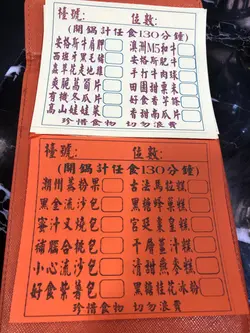 檯號: 位數:
(開鍋計任食130分鐘)
安格斯牛肩胛 澳洲M5和牛
西班牙黑毛豬 安格斯肥牛
蟲草花走地雞 手打牛肉球
爽脆萵筍片 田園甜粟米
有機冬瓜片 好食香芋條
高山娃娃菜 香糖南瓜片
珍惜食物 切勿浪費
檯號: 位數:
(開鍋計任食130分鐘)
潮州蒸粉果 古法馬拉糕
黑金流沙包 黑糖蜂巢糕
蜜汁叉燒包 宮廷棗皇糕
補腦合桃包 千層薑汁糕
小心流沙包 清甜燕參糕
好食紫薯包 黑糖桂花冰粉
珍惜食物 切勿浪費